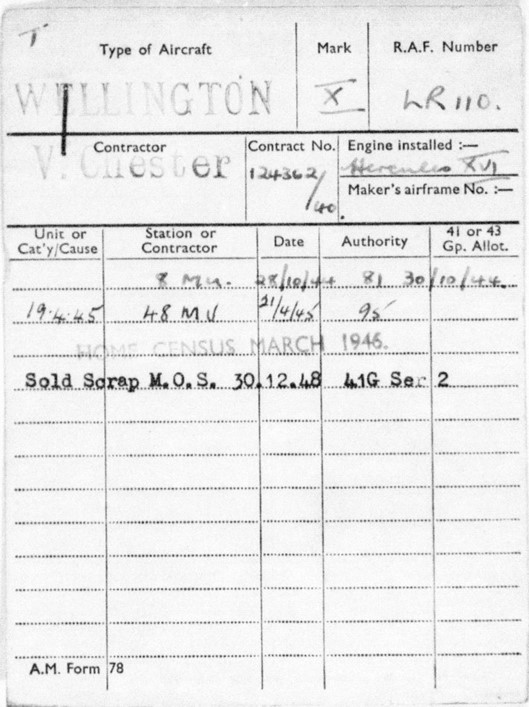 T
Type of Aircraft Mark R.A.F. Number
WELLINGTON X LR 110.
Contractor Contract No. Engine installed :—
V. Chester 124362/40. Hercules XVI
Maker's airframe No. :—
Unit or Cat'y/Cause Station or Contractor Date Authority 41 or 43 Gp. Allot.
8 M.U. 28/10/44 81 30/10/44
19.4.45 48 MU 21/4/45 95
HOME CENSUS MARCH 1946.
Sold Scrap M.O.S. 30.12.48 41G Ser 2
A.M. Form 78